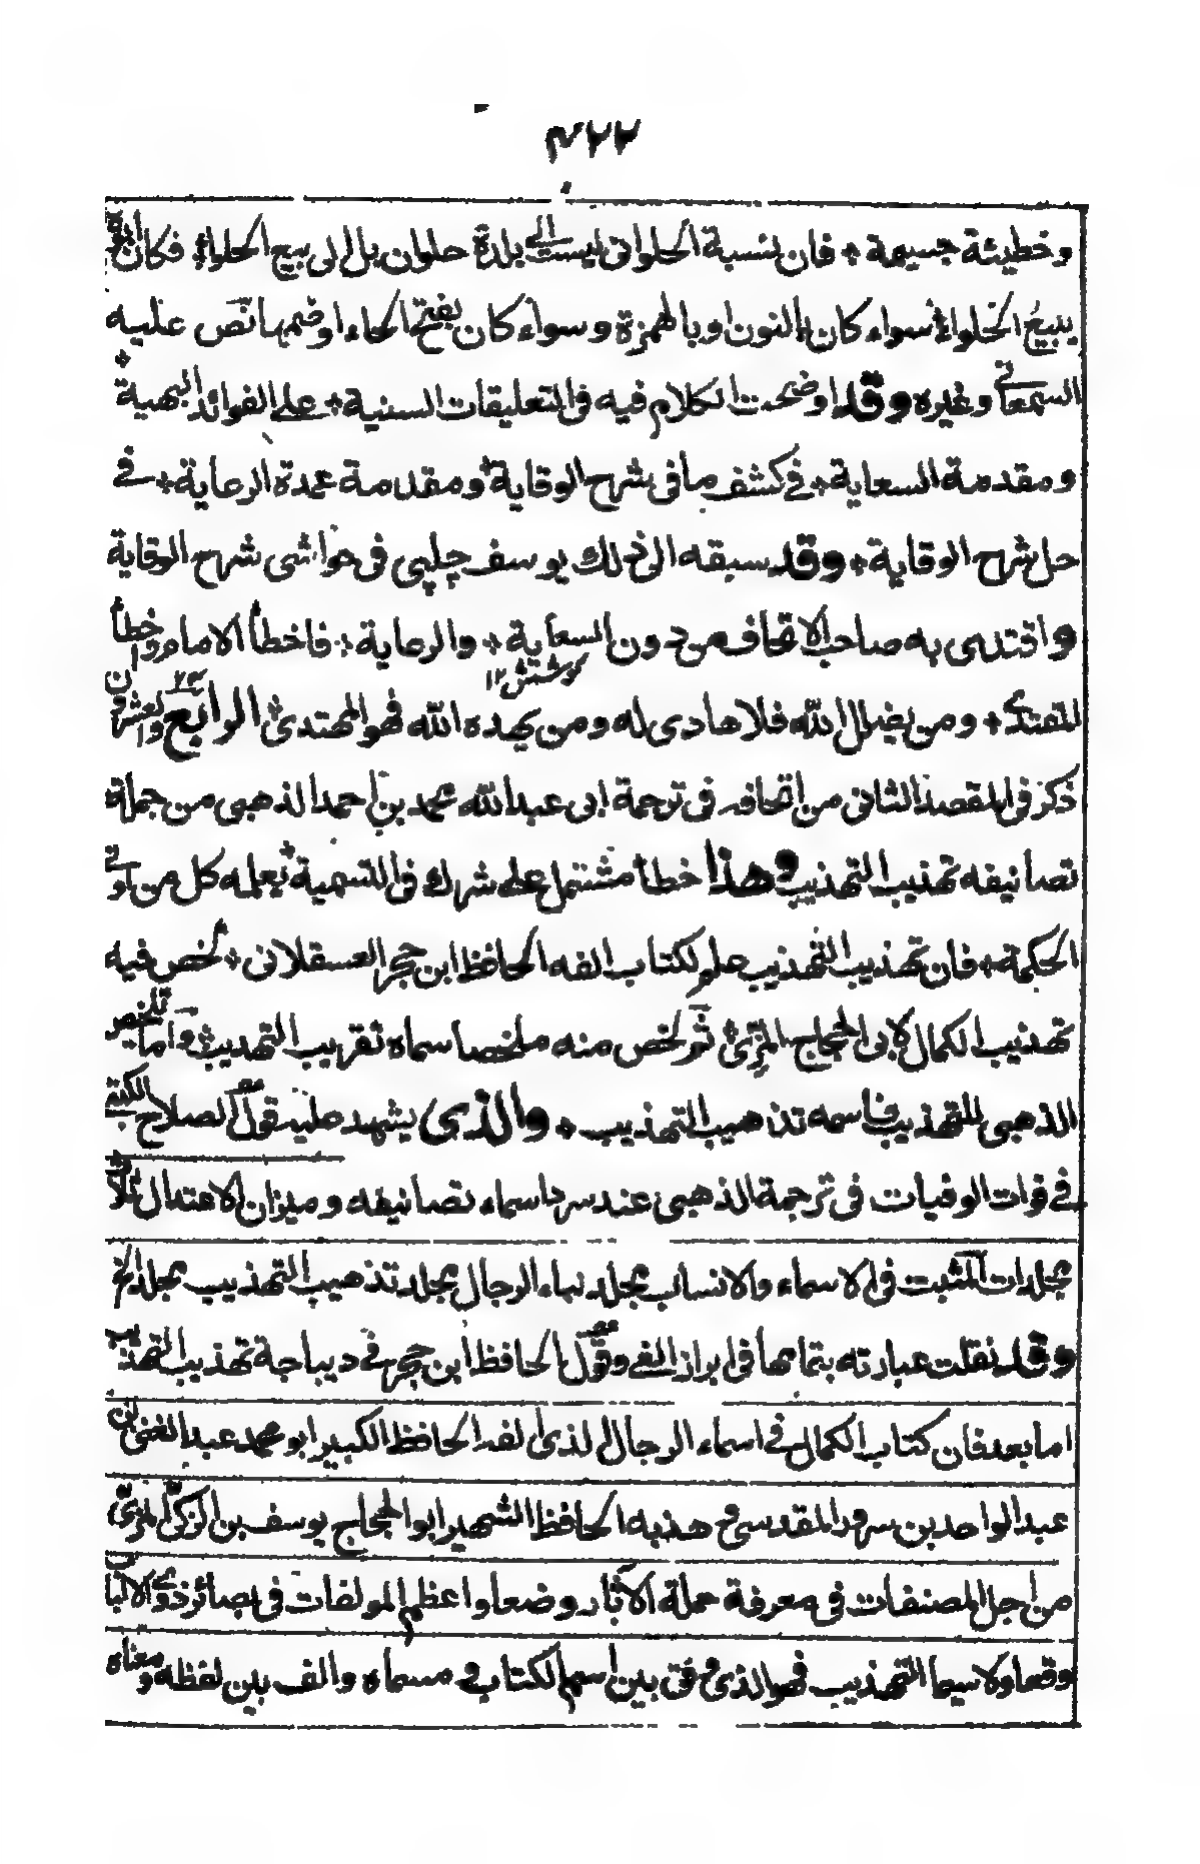 ٤٢٢
وخطيئة جسيمة + فان نسبة الحلوانى ليست الى بلدة حلوان بل الى بيع الحلواء فكان
يبيع الحلواء سواء كان بالنون او بالهمزة وسواء كان بفتح الحاء او ضمها نص عليه
السمعانى وغيره وقد اوضحت الكلام فيه فى التعليقات السنية + على الفوائد البهية +
ومقدمة السعاية + فى كشف ما فى شرح الوقاية + ومقدمة عمدة الرعاية + فى
حل شرح الوقاية + وقد سبقه الى ذلك يوسف چلپى فى حواشى شرح الوقاية
واقتدى به صاحب الاتحاف من دون السعاية + والرعاية + فاخطأ الامام وخطأ
كوشش ١٢
المقتدى + ومن يضلل الله فلا هادى له ومن يهده الله فهو المهتدى + الرابع والعشرون
ذكر فى المقصد الثانى من اتحافه فى ترجمة ابى عبد الله محمد بن احمد الذهبى من جملة
تصانيفه تهذيب التهذيب وهذا خطأ مشتمل على شرك فى التسمية + يعلمه كل من اوتى
الحكمة + فان تهذيب التهذيب علم لكتاب الفه الحافظ ابن حجر العسقلانى + لخص فيه
تهذيب الكمال لابى الحجاج المزى + ثم لخص منه ملخصا سماه تقريب التهذيب + واما تلخيص
الذهبى للتهذيب فاسمه تذهيب التهذيب + والذى يشهد عليه قول الصلاح الكتبى
فى فوات الوفيات فى ترجمة الذهبى عند سرد اسماء تصانيفه وميزان الاعتدال ثلاث
مجلدات المشتبه فى الاسماء والانساب مجلد نباء الرجال مجلد تذهيب التهذيب مجلد الخ
وقد نقلت عبارته بتمامها فى ابراز الغى وقول الحافظ ابن حجر فى ديباجة تهذيب التهذيب
اما بعد فان كتاب الكمال فى اسماء الرجال الذى الفه الحافظ الكبير ابو محمد عبد الغنى بن
عبد الواحد بن سرور المقدسى وهذبه الحافظ الشهير ابو الحجاج يوسف بن الزكى المزى
من اجل المصنفات فى معرفة حملة الآثار وضعا واعظم المولفات فى بصائر ذوى الالباب
وقعا ولا سيما التهذيب فهو الذى وفق بين اسم الكتاب ومسماه والف بين لفظه ومعناه